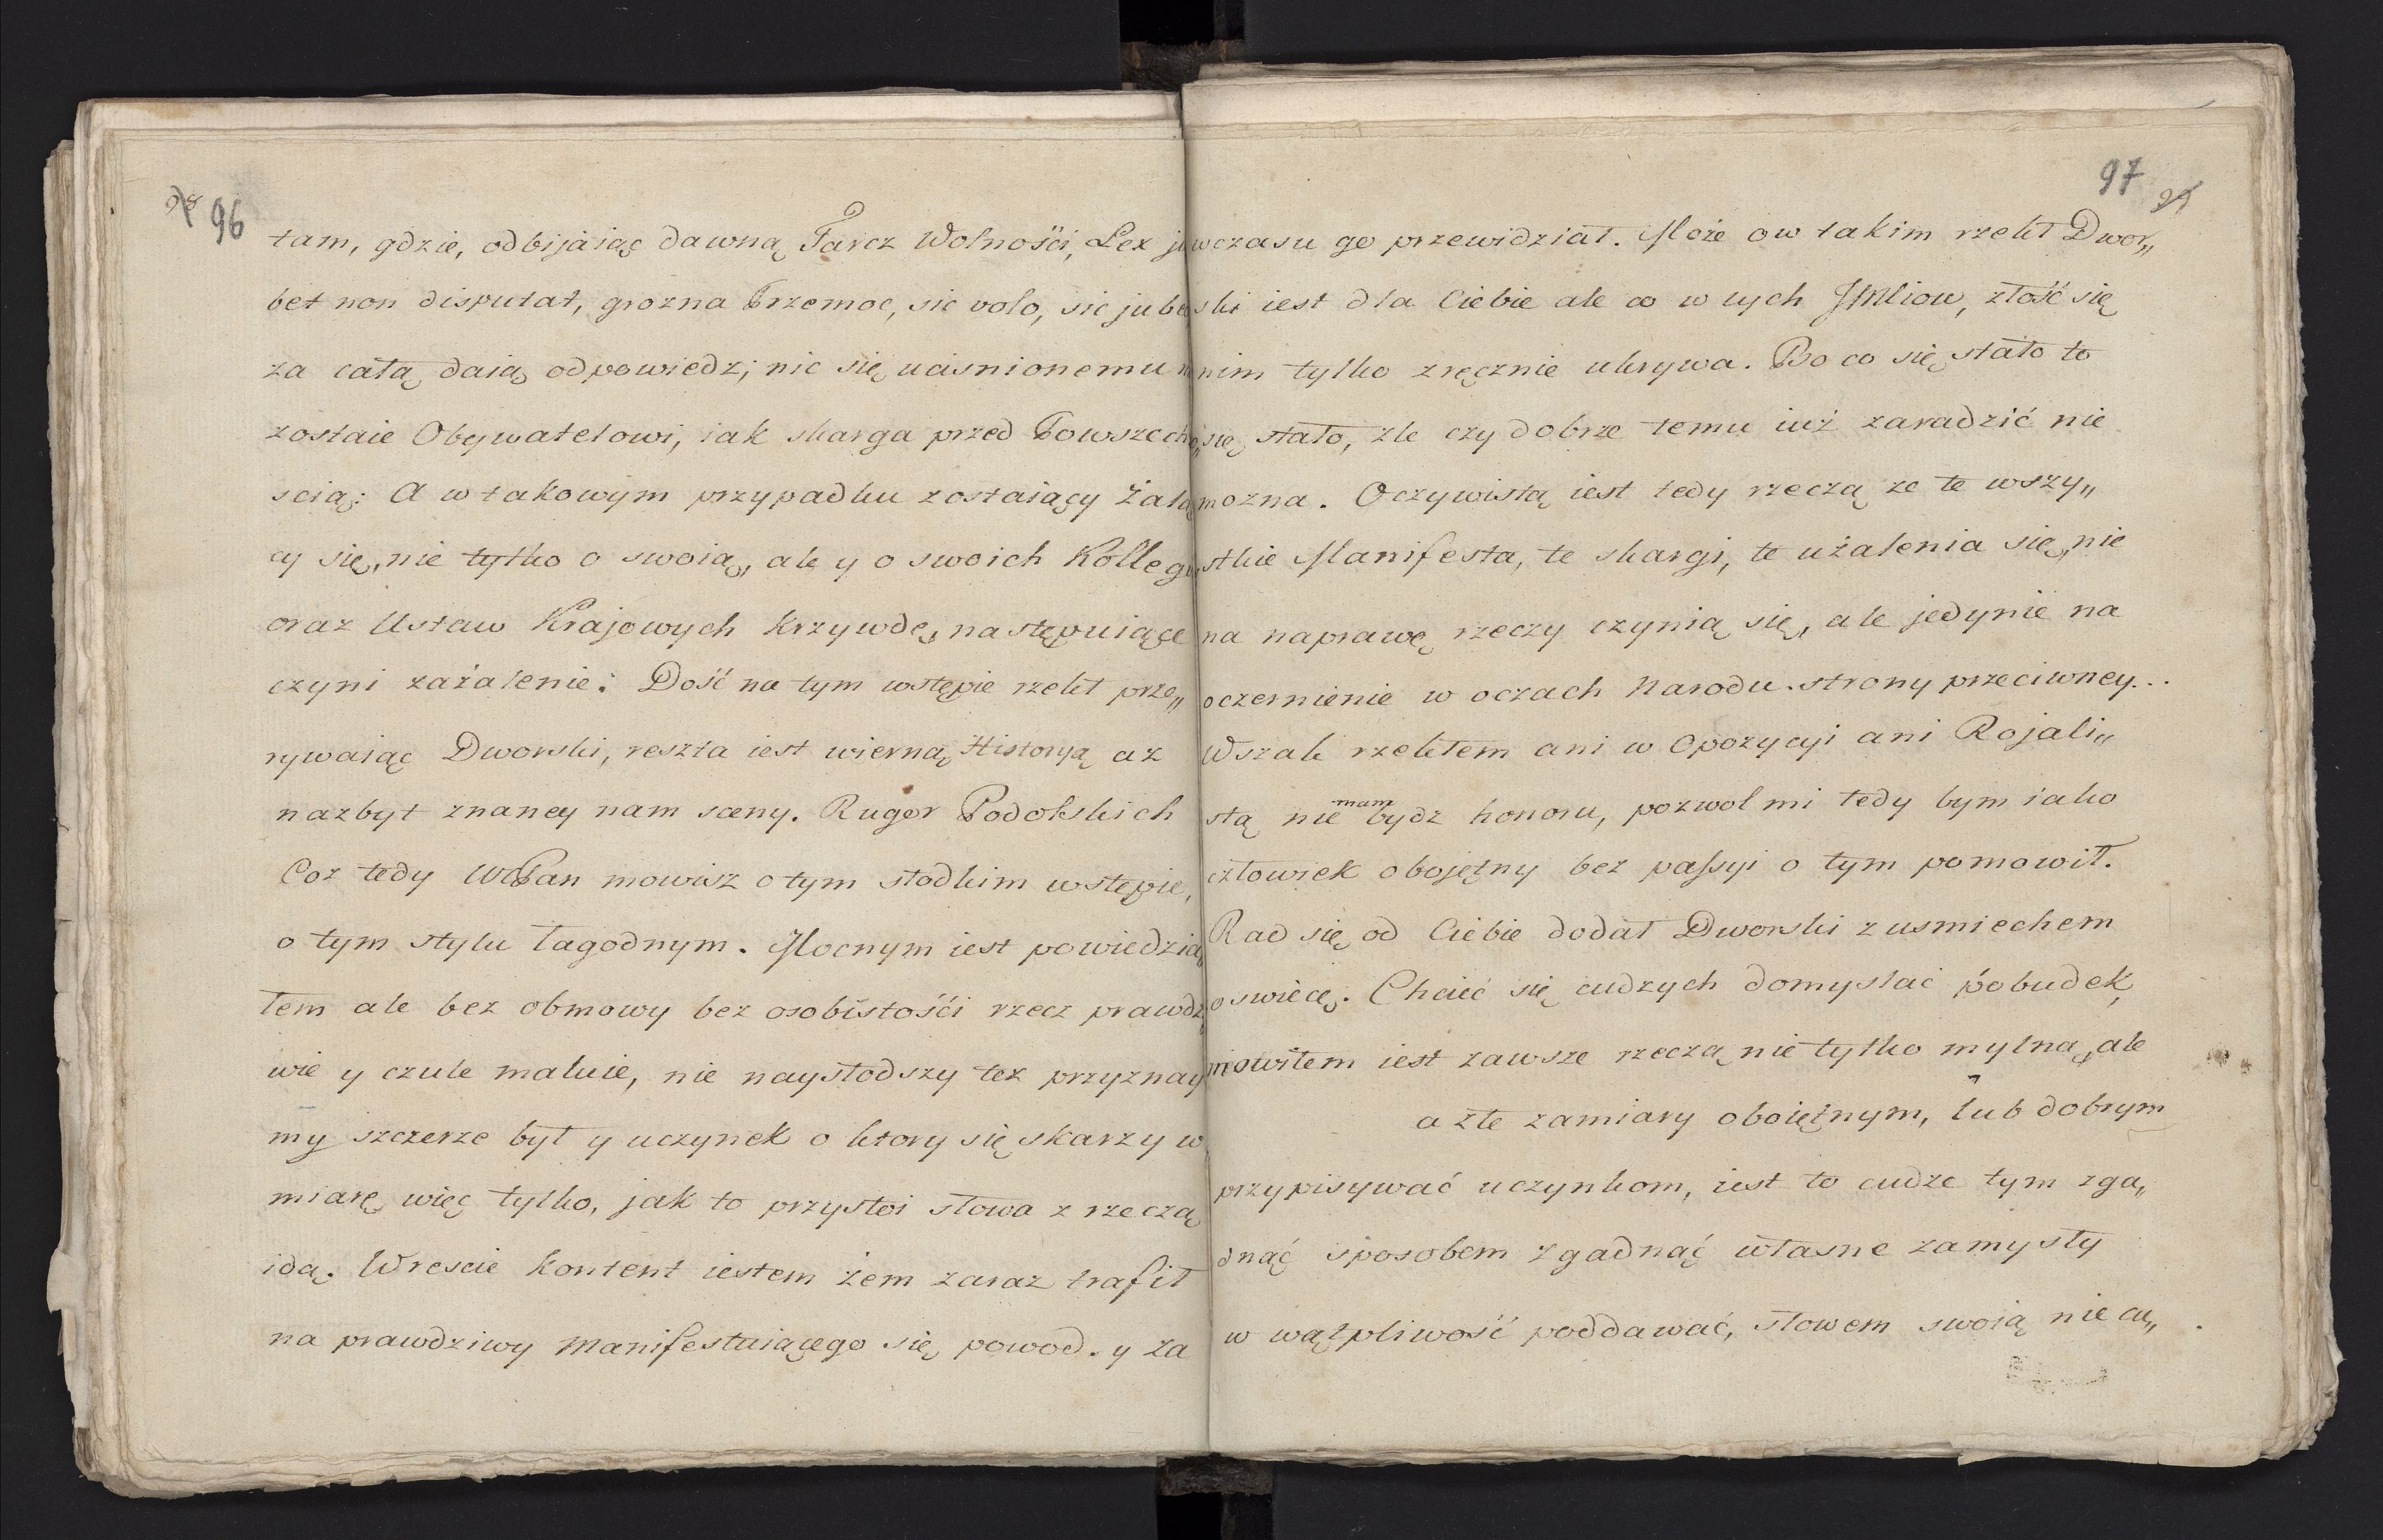 96
tam, gdzie, odbijaiąc dawną Tarcz Wolnośći, Lex ju
bet non disputat, grozna Przemoc, sic volo, sic jube
za całą daią odpowiedz; nic się ucisnionemu n
zostaie Obywatelowi, iak skarga przed Powszechno„
scią: A w takowym przypadku zostaiący Żalą
cy się, nie tylko o swoią, ale y o swoich Kolleg
oraz Ustaw Krajowych krzywdę, następuiące
czyni zażalenie: Dość na tym wstępie rzekł prze„
rywaiąc Dworski, reszta iest wierną Historyą aż
nazbyt znaney nam sceny. Rugor Podolskich
Coz tedy WPan mowisz o tym słodkim wstępie,
o tym stylu łagodnym. Mocnym iest powiedzia
łem ale bez obmowy bez osobistośći rzecz prawdzi
wie y czule maluie, nie naysłodszy tez przyznay
my szczerze był y uczynek o ktory się skarzy w
miarę więc tylko, jak to przystoi słowa z rzeczą
idą. Wrescie kontent iestem żem zaraz trafił
na prawdziwy manifestuiącego się powod. y za
97
wczasu go przewidział. Może ow takim rzekł Dwor„
ski iest dla Ciebie ale co w tych JMliow, złość się
nim tylko zręcznie ukrywa. Bo co się stało to
się stało, zle czy dobrze temu iuż zaradzić nie
mozna. Oczywistą iest tedy rzeczą ze te wszy„
stkie Manifesta, te skargi, te użalenia się, nie
na naprawę rzeczy czynią się, ale jedynie na
oczernienie w oczach Narodu strony przeciwney...
Wszak rzekłem ani w Opozycyi ani Rojali„
stą nie mam bydz honoru, pozwol mi tedy bym iako
człowiek obojętny bez passyi o tym pomowił.
Rad się od Ciebie dodał Dworski z usmiechem
oswiecę. Chcieć się cudzych domyslać pobudek,
mowiłem iest zawsze rzeczą nie tylko mylną, ale
a złe zamiary oboiętnym, lub dobrym
przypisywać uczynkom, iest to cudze tym zga„
dnąć sposobem zgadnąć własne zamysły
w wątpliwość poddawać, słowem swoią nie cu„